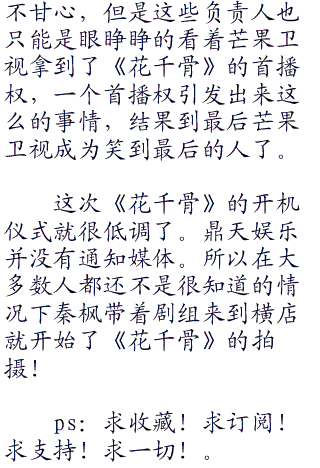 不甘心，但是这些负责人也
只能是眼睁睁的看着芒果卫
视拿到了《花千骨》的首播
权，一个首播权引发出来这
么的事情，结果到最后芒果
卫视成为笑到最后的人了。
这次《花千骨》的开机
仪式就很低调了。鼎天娱乐
并没有通知媒体。所以在大
多数人都还不是很知道的情
况下秦枫带着剧组来到横店
就开始了《花千骨》的拍
摄！
ps：求收藏！求订阅！
求支持！求一切！。